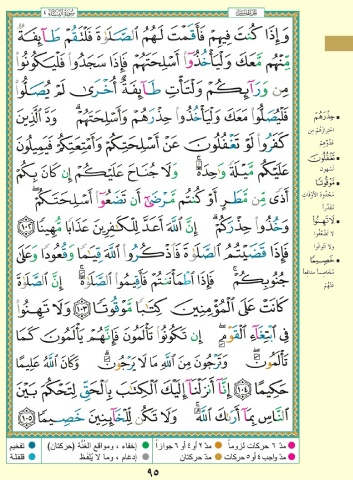 سُورَةُ النِّسَاءِ ٤
الجزء الخامس
وَإِذَا كُنتَ فِيهِمْ فَأَقَمْتَ لَهُمُ الصَّلَوٰةَ فَلْتَقُمْ طَآئِفَةٌ
مِّنْهُم مَّعَكَ وَلْيَأْخُذُوٓا۟ أَسْلِحَتَهُمْ فَإِذَا سَجَدُوا۟ فَلْيَكُونُوا۟
مِن وَرَآئِكُمْ وَلْتَأْتِ طَآئِفَةٌ أُخْرَىٰ لَمْ يُصَلُّوا۟
فَلْيُصَلُّوا۟ مَعَكَ وَلْيَأْخُذُوا۟ حِذْرَهُمْ وَأَسْلِحَتَهُمْ ۗ وَدَّ الَّذِينَ
كَفَرُوا۟ لَوْ تَغْفُلُونَ عَنْ أَسْلِحَتِكُمْ وَأَمْتِعَتِكُمْ فَيَمِيلُونَ
عَلَيْكُم مَّيْلَةً وَٰحِدَةً ۚ وَلَا جُنَاحَ عَلَيْكُمْ إِن كَانَ بِكُمْ
أَذًى مِّن مَّطَرٍ أَوْ كُنتُم مَّرْضَىٰٓ أَن تَضَعُوٓا۟ أَسْلِحَتَكُمْ ۖ
وَخُذُوا۟ حِذْرَكُمْ ۗ إِنَّ اللَّهَ أَعَدَّ لِلْكَٰفِرِينَ عَذَابًا مُّهِينًا ١٠٢
فَإِذَا قَضَيْتُمُ الصَّلَوٰةَ فَاذْكُرُوا۟ اللَّهَ قِيَٰمًا وَقُعُودًا وَعَلَىٰ
جُنُوبِكُمْ ۚ فَإِذَا اطْمَأْنَنتُمْ فَأَقِيمُوا۟ الصَّلَوٰةَ ۚ إِنَّ الصَّلَوٰةَ
كَانَتْ عَلَى الْمُؤْمِنِينَ كِتَٰبًا مَّوْقُوتًا ١٠٣ وَلَا تَهِنُوا۟
فِى ابْتِغَآءِ الْقَوْمِ ۖ إِن تَكُونُوا۟ تَأْلَمُونَ فَإِنَّهُمْ يَأْلَمُونَ كَمَا
تَأْلَمُونَ ۖ وَتَرْجُونَ مِنَ اللَّهِ مَا لَا يَرْجُونَ ۗ وَكَانَ اللَّهُ عَلِيمًا
حَكِيمًا ١٠٤ إِنَّآ أَنزَلْنَآ إِلَيْكَ الْكِتَٰبَ بِالْحَقِّ لِتَحْكُمَ بَيْنَ
النَّاسِ بِمَآ أَرَىٰكَ اللَّهُ ۚ وَلَا تَكُن لِّلْخَآئِنِينَ خَصِيمًا ١٠٥
حِذْرَهُمْ
احترازهم من
عدوّهم
تَغْفُلُونَ
تسهون
مَوْقُوتًا
محدود الأوقات
مقدّرا
لَا تَهِنُوا
لا تضعفوا
ولا تتوانوا
خَصِيمًا
مخاصما مدافعا
عنهم
مدّ ٦ حركات لزوماً
مدّ ٢ أو ٤ أو ٦ جوازاً
إخفاء، ومواقع الغنّة (حركتان)
تفخيم
مدّ واجب ٤ أو ٥ حركات
مدّ حركتان
إدغام، وما لا يُلفظ
قلقلة
٩٥